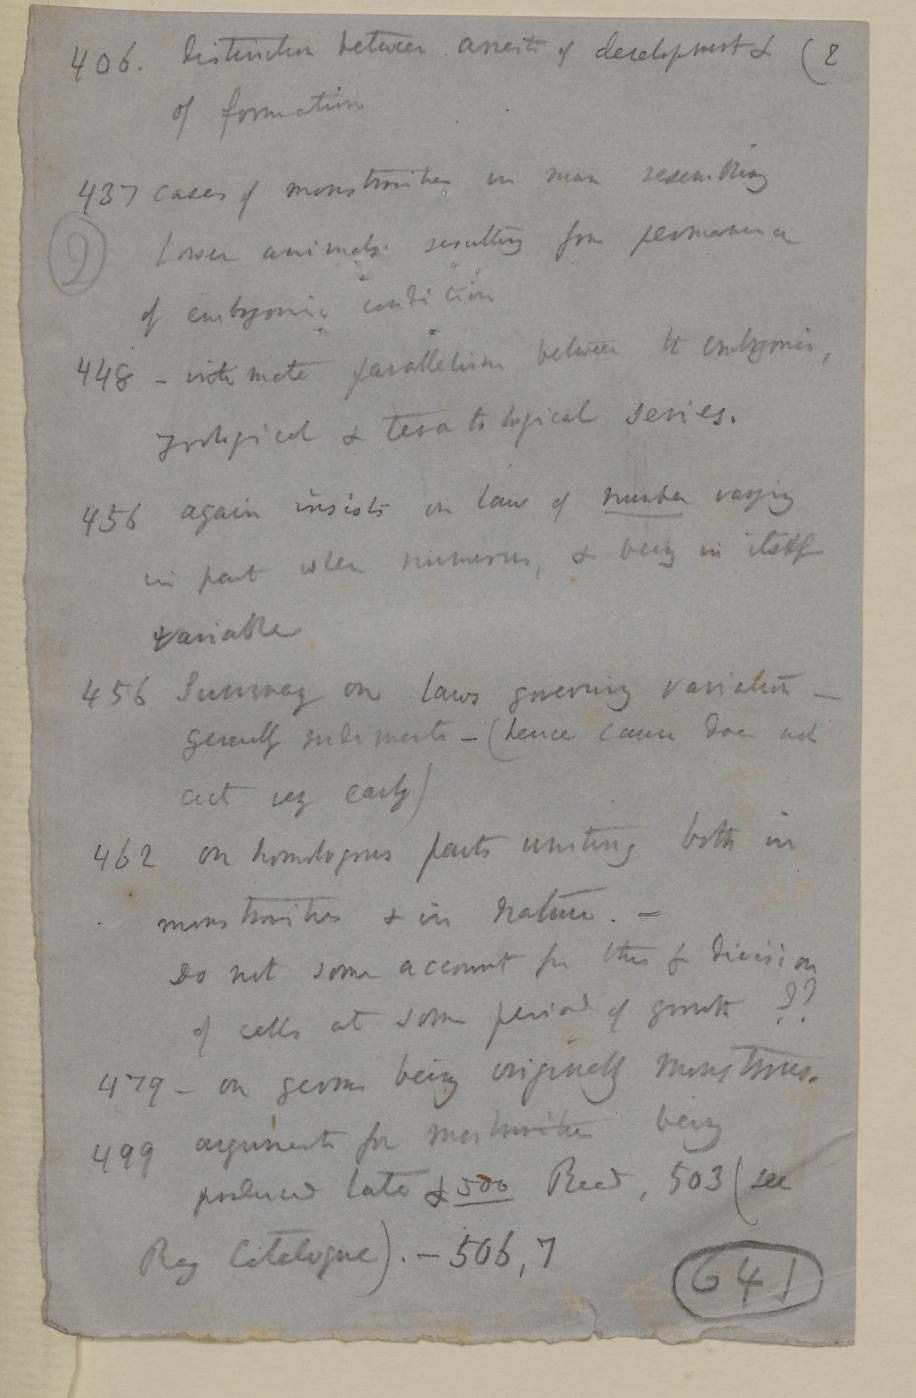 406. Distinction between arrests of development & (2
of formation
437 cases of monstrosities in man resembling
2 Lower animals resulting from permanence
of embryonic condition
448 - intimate parallelism between the embryonic,
zoological & teratological series.
456 again insists on law of number varying
in part when numerous, & being in itself
variable
456 Summary on laws governing variation —
generally rudiments - (hence cause does not
act very early)
462 on homologous parts uniting both in
monstrosities & in nature. —
Do not some account for this by division
of cells at some period of growth ??
479 - on germs being originally monstrous.
499 arguments for monstrosities being
produced late & 500 Read, 503 (see
Ray Catalogue). - 506, 7
641